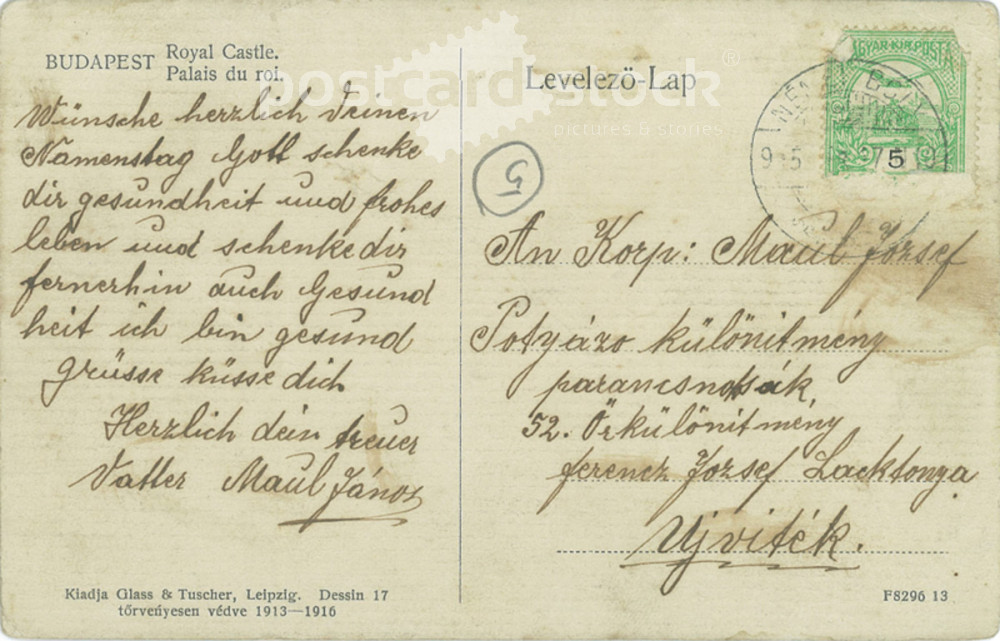 BUDAPEST Royal Castle.
Palais du roi.
Wünsche herzlich Deinen
Namenstag Gott schenke
dir gesundheit und frohes
leben und schenke dir
fernerhin auch Gesund
heit ich bin gesund
Grüsse küsse dich
Herzlich dein treuer
Vatter Maul János
Kiadja Glass & Tuscher, Leipzig. Dessin 17
törvenyesen védve 1913—1916
postcardstock®
pictures & stories
Levelező-Lap
MAGYAR KIR. POSTA
5
5
An Korp: Maul József
Potyázo különitmény
parancsnokság
52. Őrkülönitmény
ferencz József Lacktonya
Ujviték.
F8296 13